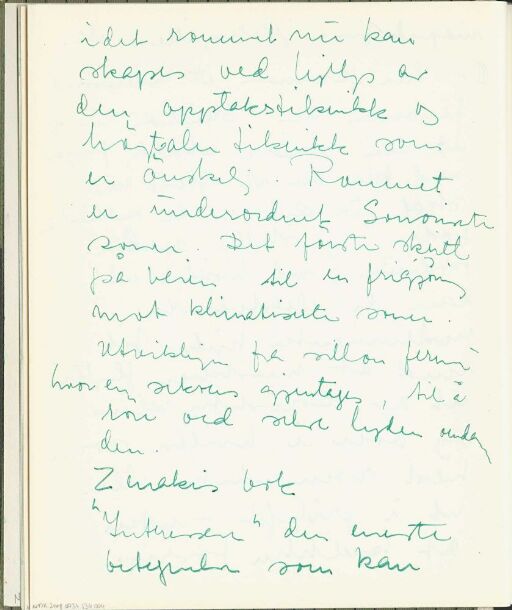 i det rommet nu kan
skapes ved hjelp av
den opptaksteknikk og
høytaler teknikk som
er önskelig. Rommet
er underordnet Sonoriserte
soner. Det förste skritt
på veien til en frigjøring
mot klimatiserte soner.
Utviklingen fra sillon fermé
hvor en sekvens gjentages, til å
röre ved selve lyden
den.
Xenakis bok
den eneste
betegnelse som kan